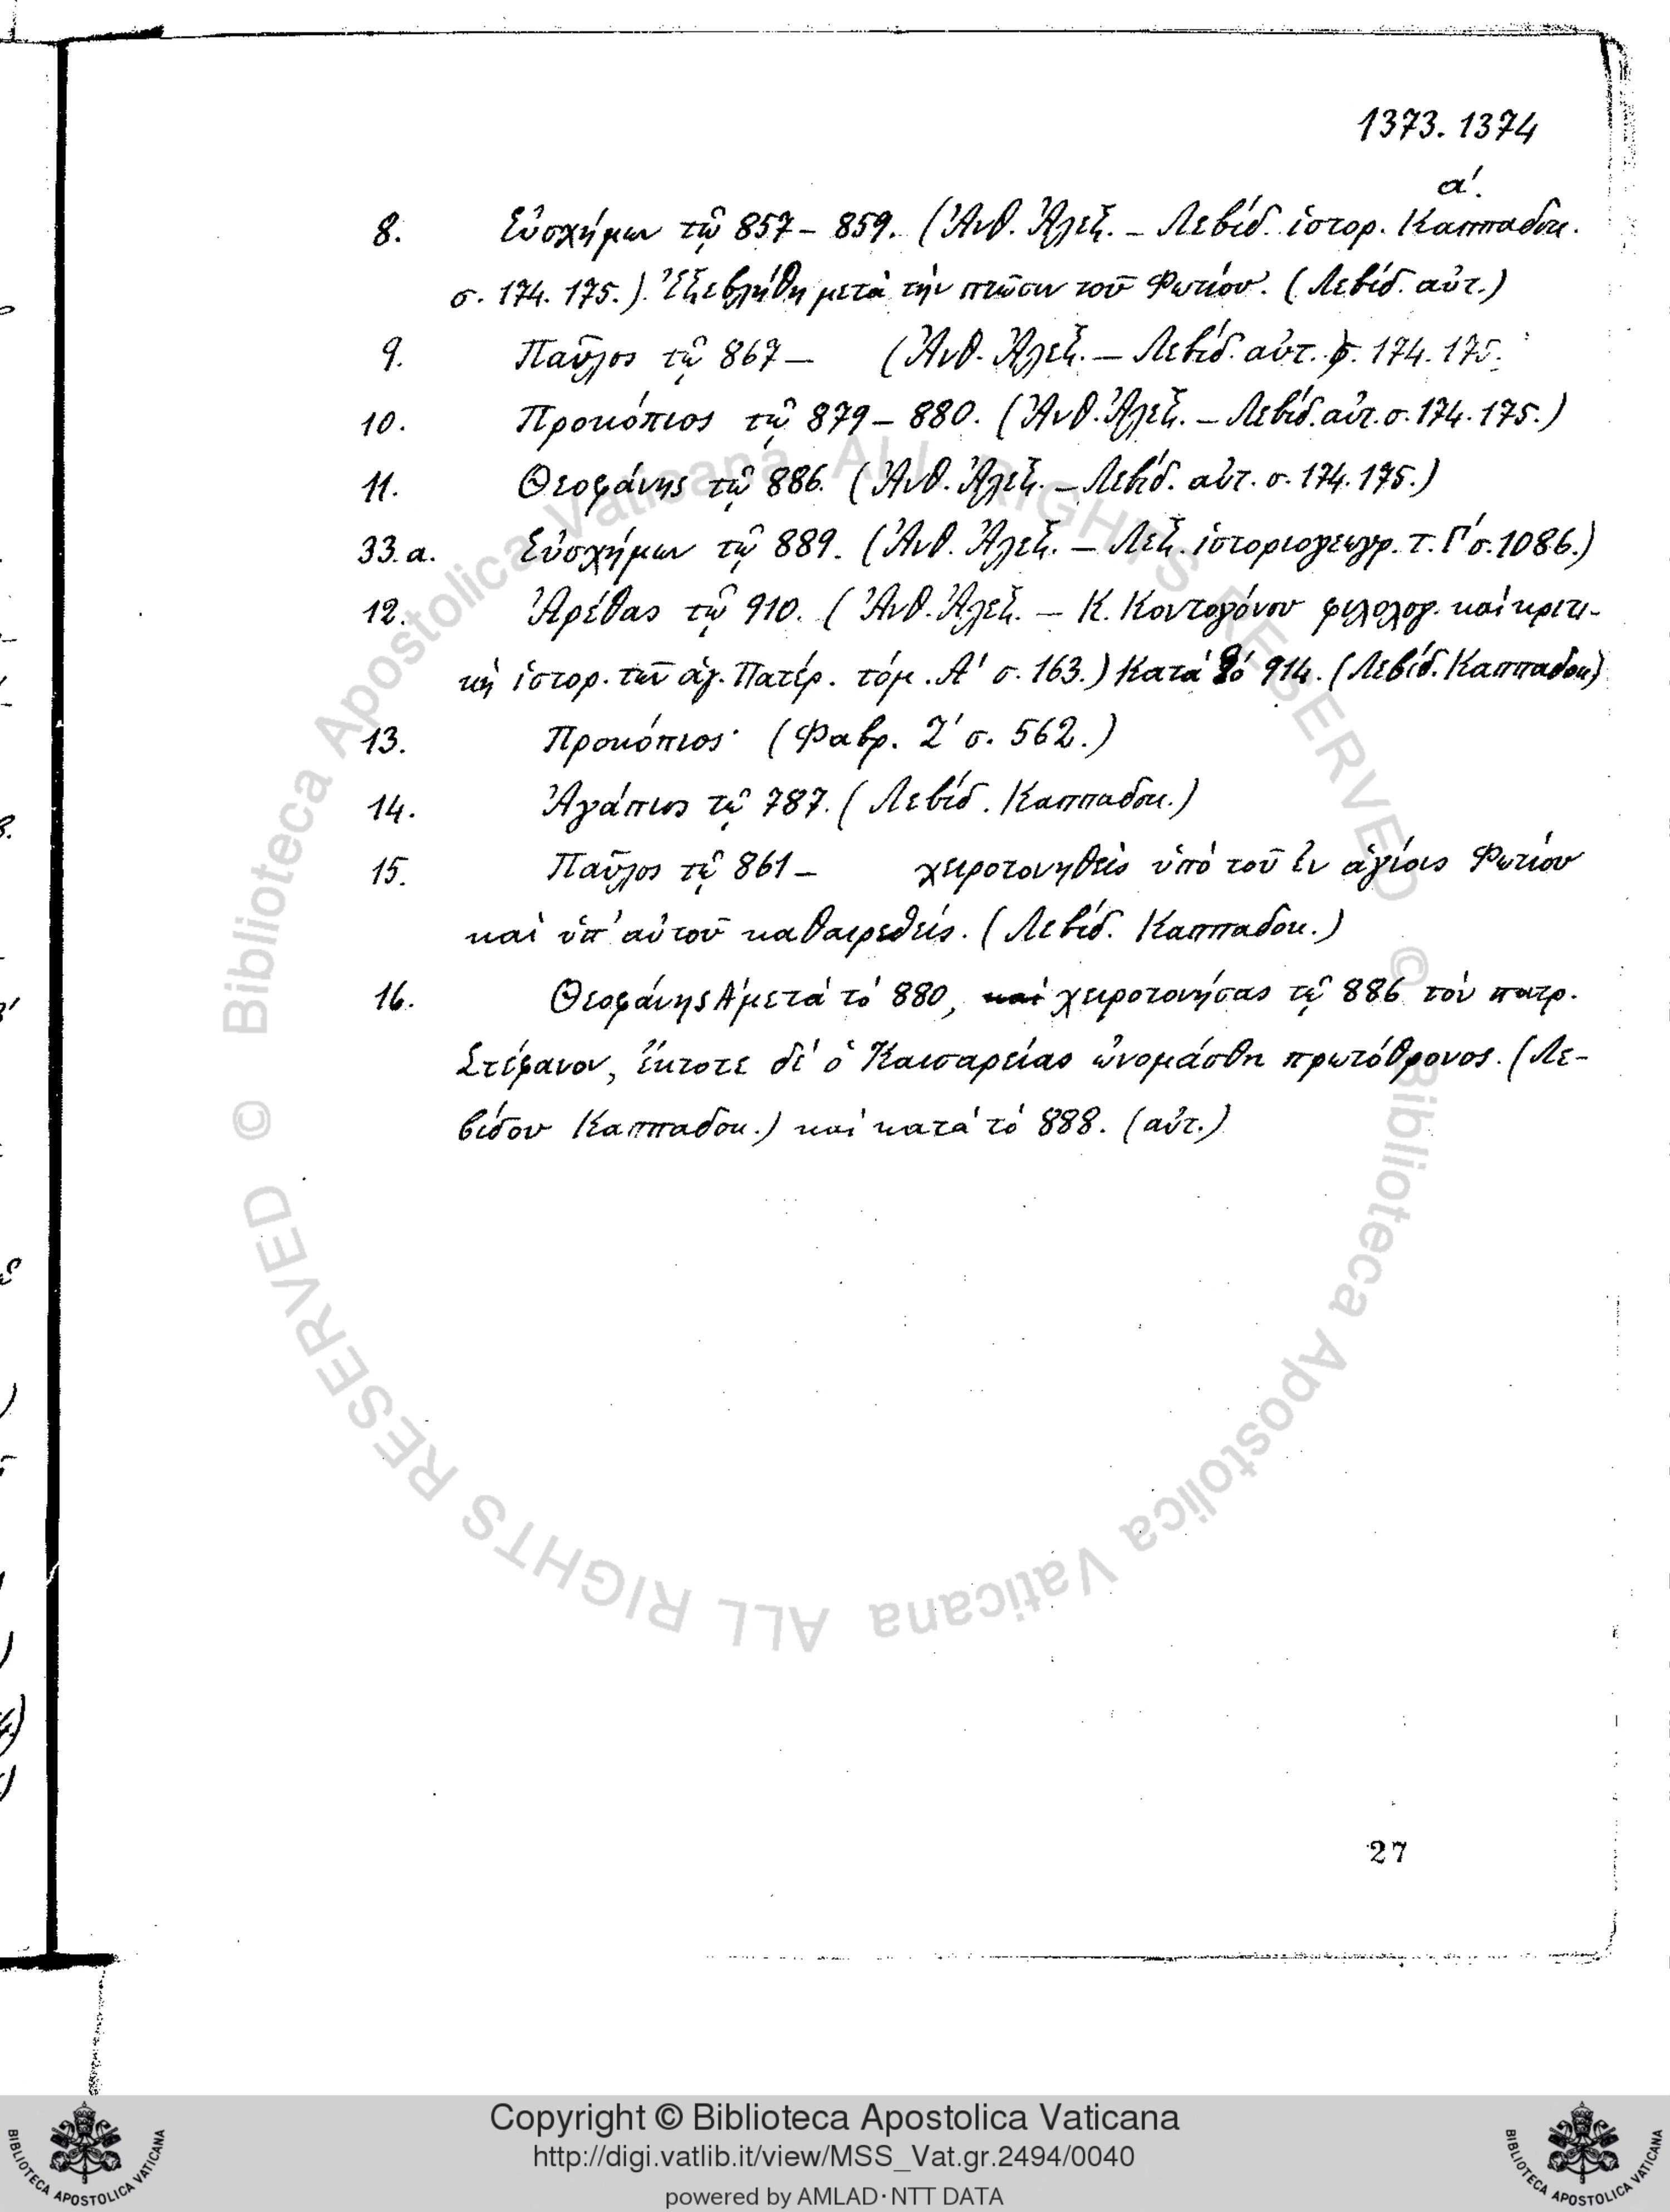 1373. 1374
α΄.
8. Εὐσχήμων τῷ 857 – 859. (Ἀνθ. Ἀλεξ. – Λεβίδ. ἱστορ. Καππαδοκ.
σ. 174. 175.). Ἐξεβλήθη μετὰ τὴν πτῶσιν τοῦ Φωτίου. (Λεβίδ. αὐτ.)
9. Παῦλος τῷ 867 – (Ἀνθ. Ἀλεξ. – Λεβίδ. αὐτ. σ. 174. 175.
10. Προκόπιος τῷ 879 – 880. (Ἀνθ. Ἀλεξ. – Λεβίδ. αὐτ. σ. 174. 175.)
11. Θεοφάνης τῷ 886. (Ἀνθ. Ἀλεξ. – Λεβίδ. αὐτ. σ. 174. 175.)
33.α. Εὐσχήμων τῷ 889. (Ἀνθ. Ἀλεξ. – Λεξ. ἱστοριογεωγρ. τ. Γ΄ σ. 1086.)
12. Ἀρέθας τῷ 910. (Ἀνθ. Ἀλεξ. – Κ. Κοντογόνου φιλολογ. καὶ κριτι-
κὴ ἱστορ. τῶν ἁγ. Πατέρ. τόμ. Α΄ σ. 163.) Κατὰ τὸ 914. (Λεβίδ. Καππαδοκ)
13. Προκόπιος· (Φαβρ. Ζ΄ σ. 562.)
14. Ἀγάπιος τῷ 787. (Λεβίδ. Καππαδοκ.)
15. Παῦλος τῷ 861 – χειροτονηθεὶς ὑπὸ τοῦ ἐν ἁγίοις Φωτίου
καὶ ὑπ' αὐτοῦ καθαιρεθείς. (Λεβίδ. Καππαδοκ.)
16. Θεοφάνης Α΄ μετὰ τὸ 880, καὶ χειροτονήσας τῷ 886 τὸν πατρ.
Στέφανον, ἔκτοτε δὲ ὁ Καισαρείας ὠνομάσθη πρωτόθρονος. (Λε-
βίδου Καππαδοκ.) καὶ κατὰ τὸ 888. (αὐτ.)
27
© Biblioteca Apostolica Vaticana ALL RIGHTS RESERVED
© Biblioteca Apostolica Vaticana ALL RIGHTS RESERVED
Copyright © Biblioteca Apostolica Vaticana
http://digi.vatlib.it/view/MSS_Vat.gr.2494/0040
powered by AMLAD·NTT DATA
BIBLIOTECA APOSTOLICA VATICANA
BIBLIOTECA APOSTOLICA VATICANA